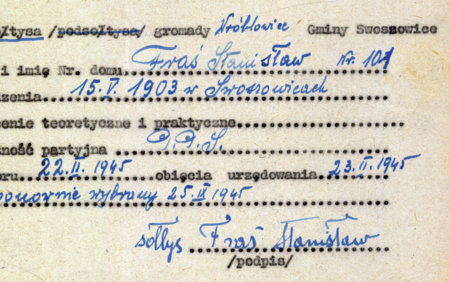 ołtysa /podsołtysa/ gromady Wróblowice Gminy Swoszowice
i imię Nr. domu Fraś Stanisław Nr. 101
zenia 15.V. 1903 w Swoszowicach
enie teoretyczne i praktyczne
ność partyjna P.P.S.
oru 22.II.1945 objęcia urzędowania 23.II.1945
ponownie wybrany 25.IX 1945
sołtys Fraś Stanisław
/podpis/